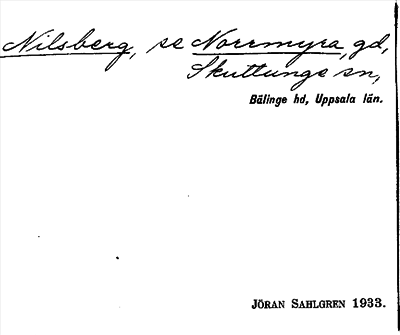 Nilsberg, se Norrmyra, gd,
Skuttunge sn,
Bälinge hd, Uppsala län.
JÖRAN SAHLGREN 1933.